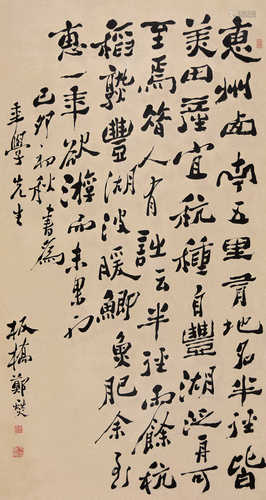 惠州西南五里有地名半徑皆
美田產宜秔種自豐湖泛舟可
至焉答人有詩云半徑雨餘秔
稻熟豐湖波暖鯽魚肥余到
惠一年欲游而未果
己卯初秋書為
年學先生
板橋鄭燮